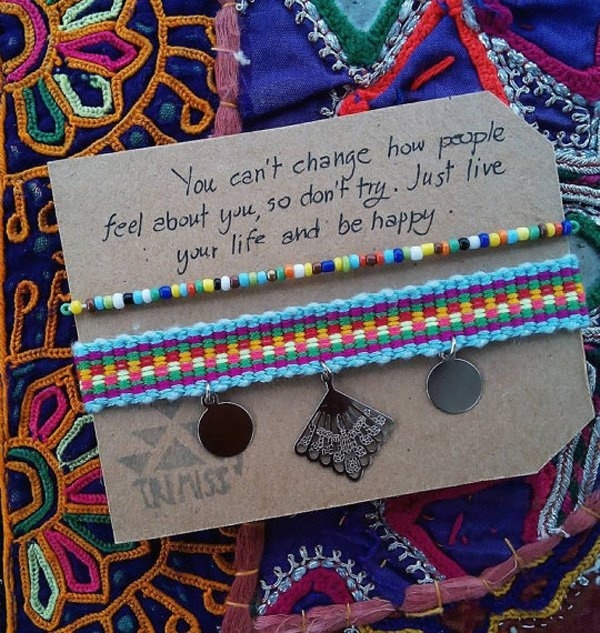 You can't change how people
feel about you, so don't try. Just live
your life and be happy.